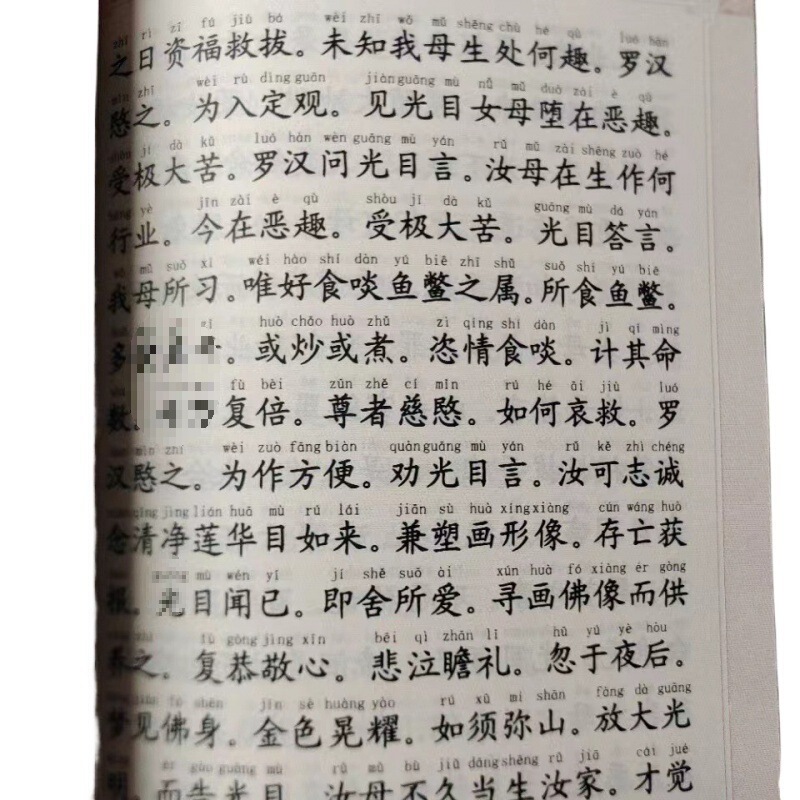 zhī rì zī fú jiù bá wèi zhī wǒ mǔ shēng chù hé qù luó hàn
之日资福救拔。未知我母生处何趣。罗汉
mǐn zhī wèi rù dìng guān jiàn guāng mù nǚ mǔ duò zài è qù
愍之。为入定观。见光目女母堕在恶趣。
shòu jí dà kǔ luó hàn wèn guāng mù yán rǔ mǔ zài shēng zuò hé
受极大苦。罗汉问光目言。汝母在生作何
háng yè jīn zài è qù shòu jí dà kǔ guāng mù dá yán
行业。今在恶趣。受极大苦。光目答言。
wǒ mǔ suǒ xí wéi hào shí dàn yú biē zhī shǔ suǒ shí yú biē
我母所习。唯好食啖鱼鳖之属。所食鱼鳖。
huò chǎo huò zhǔ zì qíng shí dàn jì qí mìng
多 。或炒或煮。恣情食啖。计其命
fù bèi zūn zhě cí mǐn rú hé āi jiù luó
数。 复倍。尊者慈愍。如何哀救。罗
hàn mǐn zhī wèi zuò fāng biàn quàn guāng mù yán rǔ kě zhì chéng
汉愍之。为作方便。劝光目言。汝可志诚
qīng jìng lián huā mù rú lái jiān sù huà xíng xiàng cún wáng huò
念清净莲华目如来。兼塑画形像。存亡获
mù wén yǐ jí shě suǒ ài xún huà fó xiàng ér gòng
报。光目闻已。即舍所爱。寻画佛像而供
zhī fù gōng jìng xīn bēi qì zhān lǐ hū yú yè hòu
养之。复恭敬心。悲泣瞻礼。忽于夜后。
jiàn fó shēn jīn sè huǎng yào rú xū mí shān fàng dà guāng
梦见佛身。金色晃耀。如须弥山。放大光
ér gào guāng mù rǔ mǔ bù jiǔ dāng shēng rǔ jiā cái jué
明。而告光目。汝母不久当生汝家。才觉